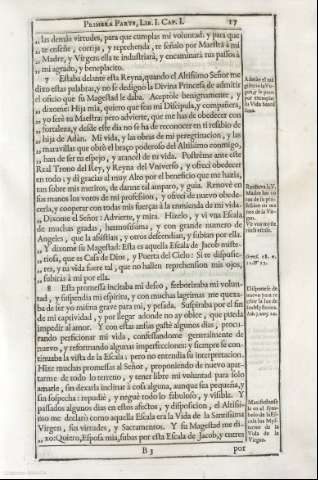 PRIMERA PARTE, LIB. I. CAP. I. 17
„ las demàs virtudes, para que cumplas mi voluntad: y para que
„ te enseñe, corrija, y reprehenda, te señalo por Maestra à mi
„ Madre, y Virgen ella te industriarà, y encaminarà tus passos à
„ mi agrado, y beneplacito.
7 Estaba delante esta Reyna, quando el Altissimo Señor me
dixo estas palabras, y no se dedignò la Divina Princesa de admitir
el oficio que su Magestad le daba. Aceptòle benignamente, y
„ dixome: Hija mia, quiero que seas mi Discipula, y compañera,
„ y yo serè tu Maestra: pero advierte, que me has de obedecer con
„ fortaleza, y desde este dia no se ha de reconocer en ti resabio de
„ hija de Adàn. Mi vida, y las obras de mi peregrinacion, y las
„ maravillas que obrò el brazo poderoso del Altissimo conmigo,
„ han de ser tu espejo, y arancèl de tu vida. Postrème ante este
Real Trono del Rey, y Reyna del Universo, y ofrecì obedecer
en todo: y dì gracias al muy Alto por el beneficio que me hacia,
tan sobre mis meritos, de darme tal amparo, y guia. Renovè en
sus manos los votos de mi profession, y ofrecì de nuevo obedecerla,
y cooperar con todas mis fuerzas à la enmienda de mi vida.
„ Dixome el Señor: Advierte, y mira. Hizelo, y vì una Escala
de muchas gradas, hermosissima, y con grande numero de
Angeles, que la assistian, y otros descendian, y subian por ella.
„ Y dixome su Magestad: Esta es aquella Escala de Jacob misteriosa,
que es Casa de Dios, y Puerta del Cielo: Si te dispusieres,
y tu vida fuere tal, que no hallen reprehension mis ojos,
„ subiràs à mi por ella.
8 Esta promessa incitaba mi deseo, fervorizaba mi voluntad,
y suspendia mi espiritu, y con muchas lagrimas me quexaba
de ser yo misma grave para mì, y pesada. Suspiraba por el fin
de mi captividad, y por llegar adonde no ay obice, que pueda
impedir al amor. Y con estas ansias gastè algunos dias, procurando
perficionar mi vida, confessandome generalmente de
nuevo, y reformando algunas imperfecciones: y siempre se continuaba
la vista de la Escala; pero no entendia su interpretacion.
Hize muchas promessas al Señor, proponiendo de nuevo apartarme
de todo lo terreno, y tener libre mi voluntad para solo
amarle, sin dexarla inclinar à cosa alguna, aunque sea pequeña, y
sin sospecha: repudiè, y neguè todo lo fabuloso, y visible. Y
passados algunos dias en estos afectos, y disposicion, el Altissimo
me declarò como aquella Escala era la Vida de la Santissima
Virgen, sus virtudes, y Sacramentos. Y su Magestad me dixo:
Quiero, Esposa mia, subas por esta Escala de Jacob, y entres
B 3 por